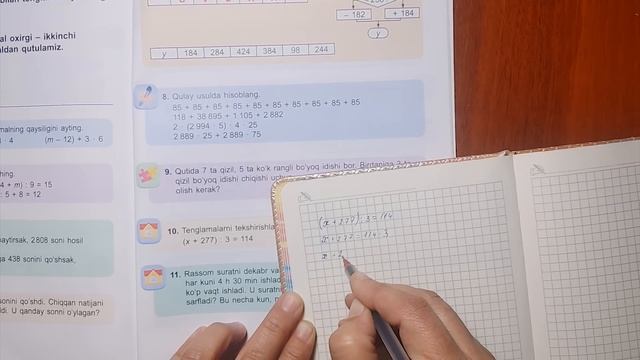 al oxirgi – ikkinchi
aldan qutulamiz.
malning qaysiligini ayting.
· 4 (m – 12) + 3 · 6
hing.
4 + m) : 9 = 15
: 5 + 8 = 12
paytirsak, 2 808 soni hosil
ga 438 sonini qo'shsak,
sonini qo'shdi. Chiqqan natijani
di. U qanday sonni o'ylagan?
– 182 + 184
y
y 184 284 424 384 98 244
8. Qulay usulda hisoblang.
85 + 85 + 85 + 85 + 85 + 85 + 85 + 85 + 85 + 85
118 + 38 695 + 1 105 + 2 882
2 · (2 994 · 5) · 4 · 25
2 889 · 25 + 2 889 · 75
9. Qutida 7 ta qizil, 5 ta ko'k rangli bo'yoq idishi bor. Birdaniga
qizil bo'yoq idishi chiqishi uch
olish kerak?
10. Tenglamalarni tekshirish
(x + 277) : 3 = 114
11. Rassom suratni dekabr va
har kuni 4 h 30 min ishlad
ko'p vaqt ishladi. U surat
sarfladi? Bu necha kun,
(x + 277) : 3 = 114
x + 277 = 114 · 3
x +